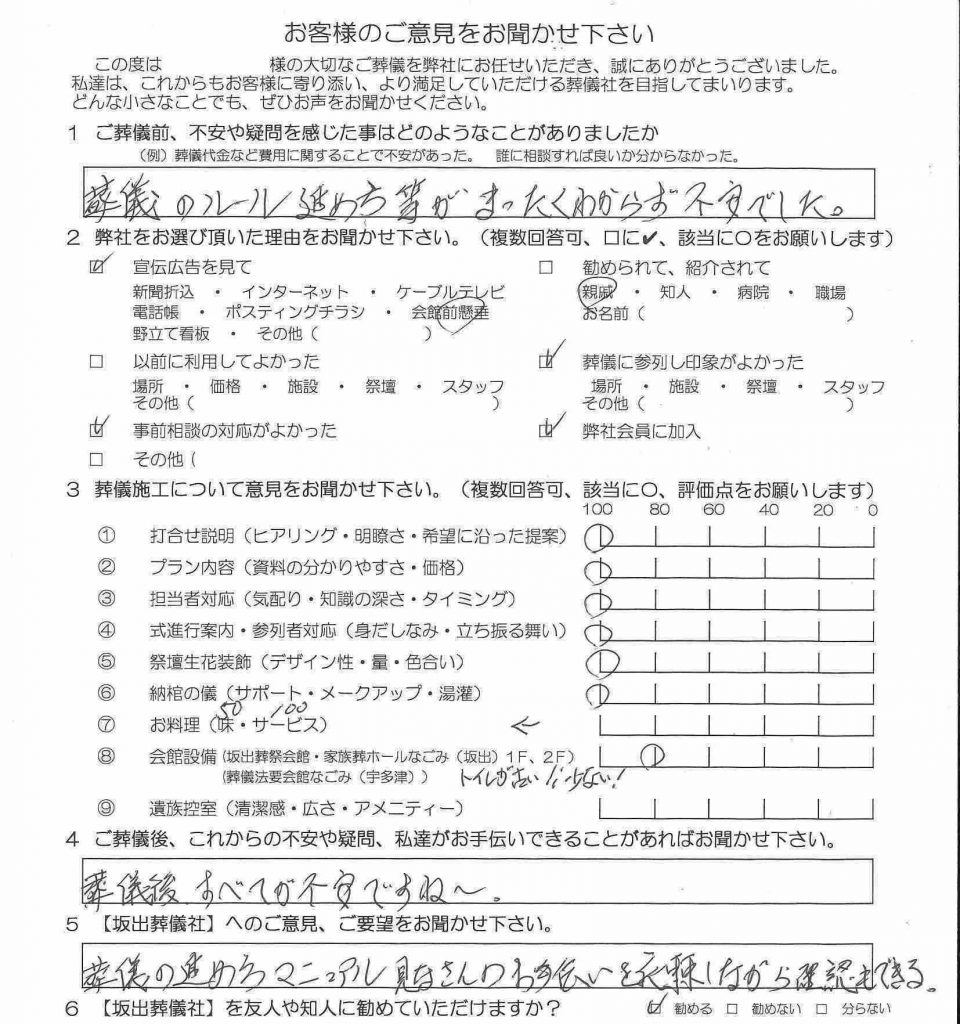 お客様のご意見をお聞かせ下さい
この度は 様の大切なご葬儀を弊社にお任せいただき、誠にありがとうございました。
私達は、これからもお客様に寄り添い、より満足していただける葬儀社を目指してまいります。
どんな小さなことでも、ぜひお声をお聞かせください。
1 ご葬儀前、不安や疑問を感じた事はどのようなことがありましたか
（例）葬儀代金など費用に関することで不安があった。 誰に相談すれば良いか分からなかった。
葬儀のルール進め方等がまったくわからず不安でした。
2 弊社をお選び頂いた理由をお聞かせ下さい。（複数回答可、口に✔、該当に〇をお願いします）
☑ 宣伝広告を見て □ 勧められて、紹介されて
新聞折込 ・ インターネット ・ ケーブルテレビ 親戚 ・ 知人 ・ 病院 ・ 職場
電話帳 ・ ポスティングチラシ ・ 会館前懸垂 お名前（ ）
野立て看板 ・ その他（ ）
□ 以前に利用してよかった ☑ 葬儀に参列し印象がよかった
場所 ・ 価格 ・ 施設 ・ 祭壇 ・ スタッフ 場所 ・ 施設 ・ 祭壇 ・ スタッフ
その他（ ） その他（ ）
☑ 事前相談の対応がよかった ☑ 弊社会員に加入
□ その他（
3 葬儀施工について意見をお聞かせ下さい。（複数回答可、該当に〇、評価点をお願いします）
100 80 60 40 20 0
① 打合せ説明（ヒアリング・明瞭さ・希望に沿った提案）
② プラン内容（資料の分かりやすさ・価格）
③ 担当者対応（気配り・知識の深さ・タイミング）
④ 式進行案内・参列者対応（身だしなみ・立ち振る舞い）
⑤ 祭壇生花装飾（デザイン性・量・色合い）
⑥ 納棺の儀（サポート・メークアップ・湯灌）
50 100
⑦ お料理（味・サービス） ←
⑧ 会館設備（坂出葬祭会館・家族葬ホールなごみ（坂出）1F、2F）
（葬儀法要会館なごみ（宇多津）） トイレが古い 少ない！
⑨ 遺族控室（清潔感・広さ・アメニティー）
4 ご葬儀後、これからの不安や疑問、私達がお手伝いできることがあればお聞かせ下さい。
葬儀後すべてが不安ですね～。
5 【坂出葬儀社】へのご意見、ご要望をお聞かせ下さい。
葬儀の進め方マニュアル 見なさんのお手伝いを しながら確認もできる。
6 【坂出葬儀社】を友人や知人に勧めていただけますか？ ☑ 勧める □ 勧めない □ 分らない